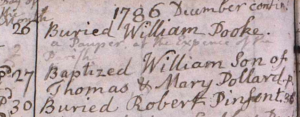 1786 December contin
26 Buried William Pooke.
a Pauper, at the Expence of the
Parish
P. 27 Baptized William Son of
Thomas & Mary Pollard. p.
P 30 Buried Robert Pinfont.